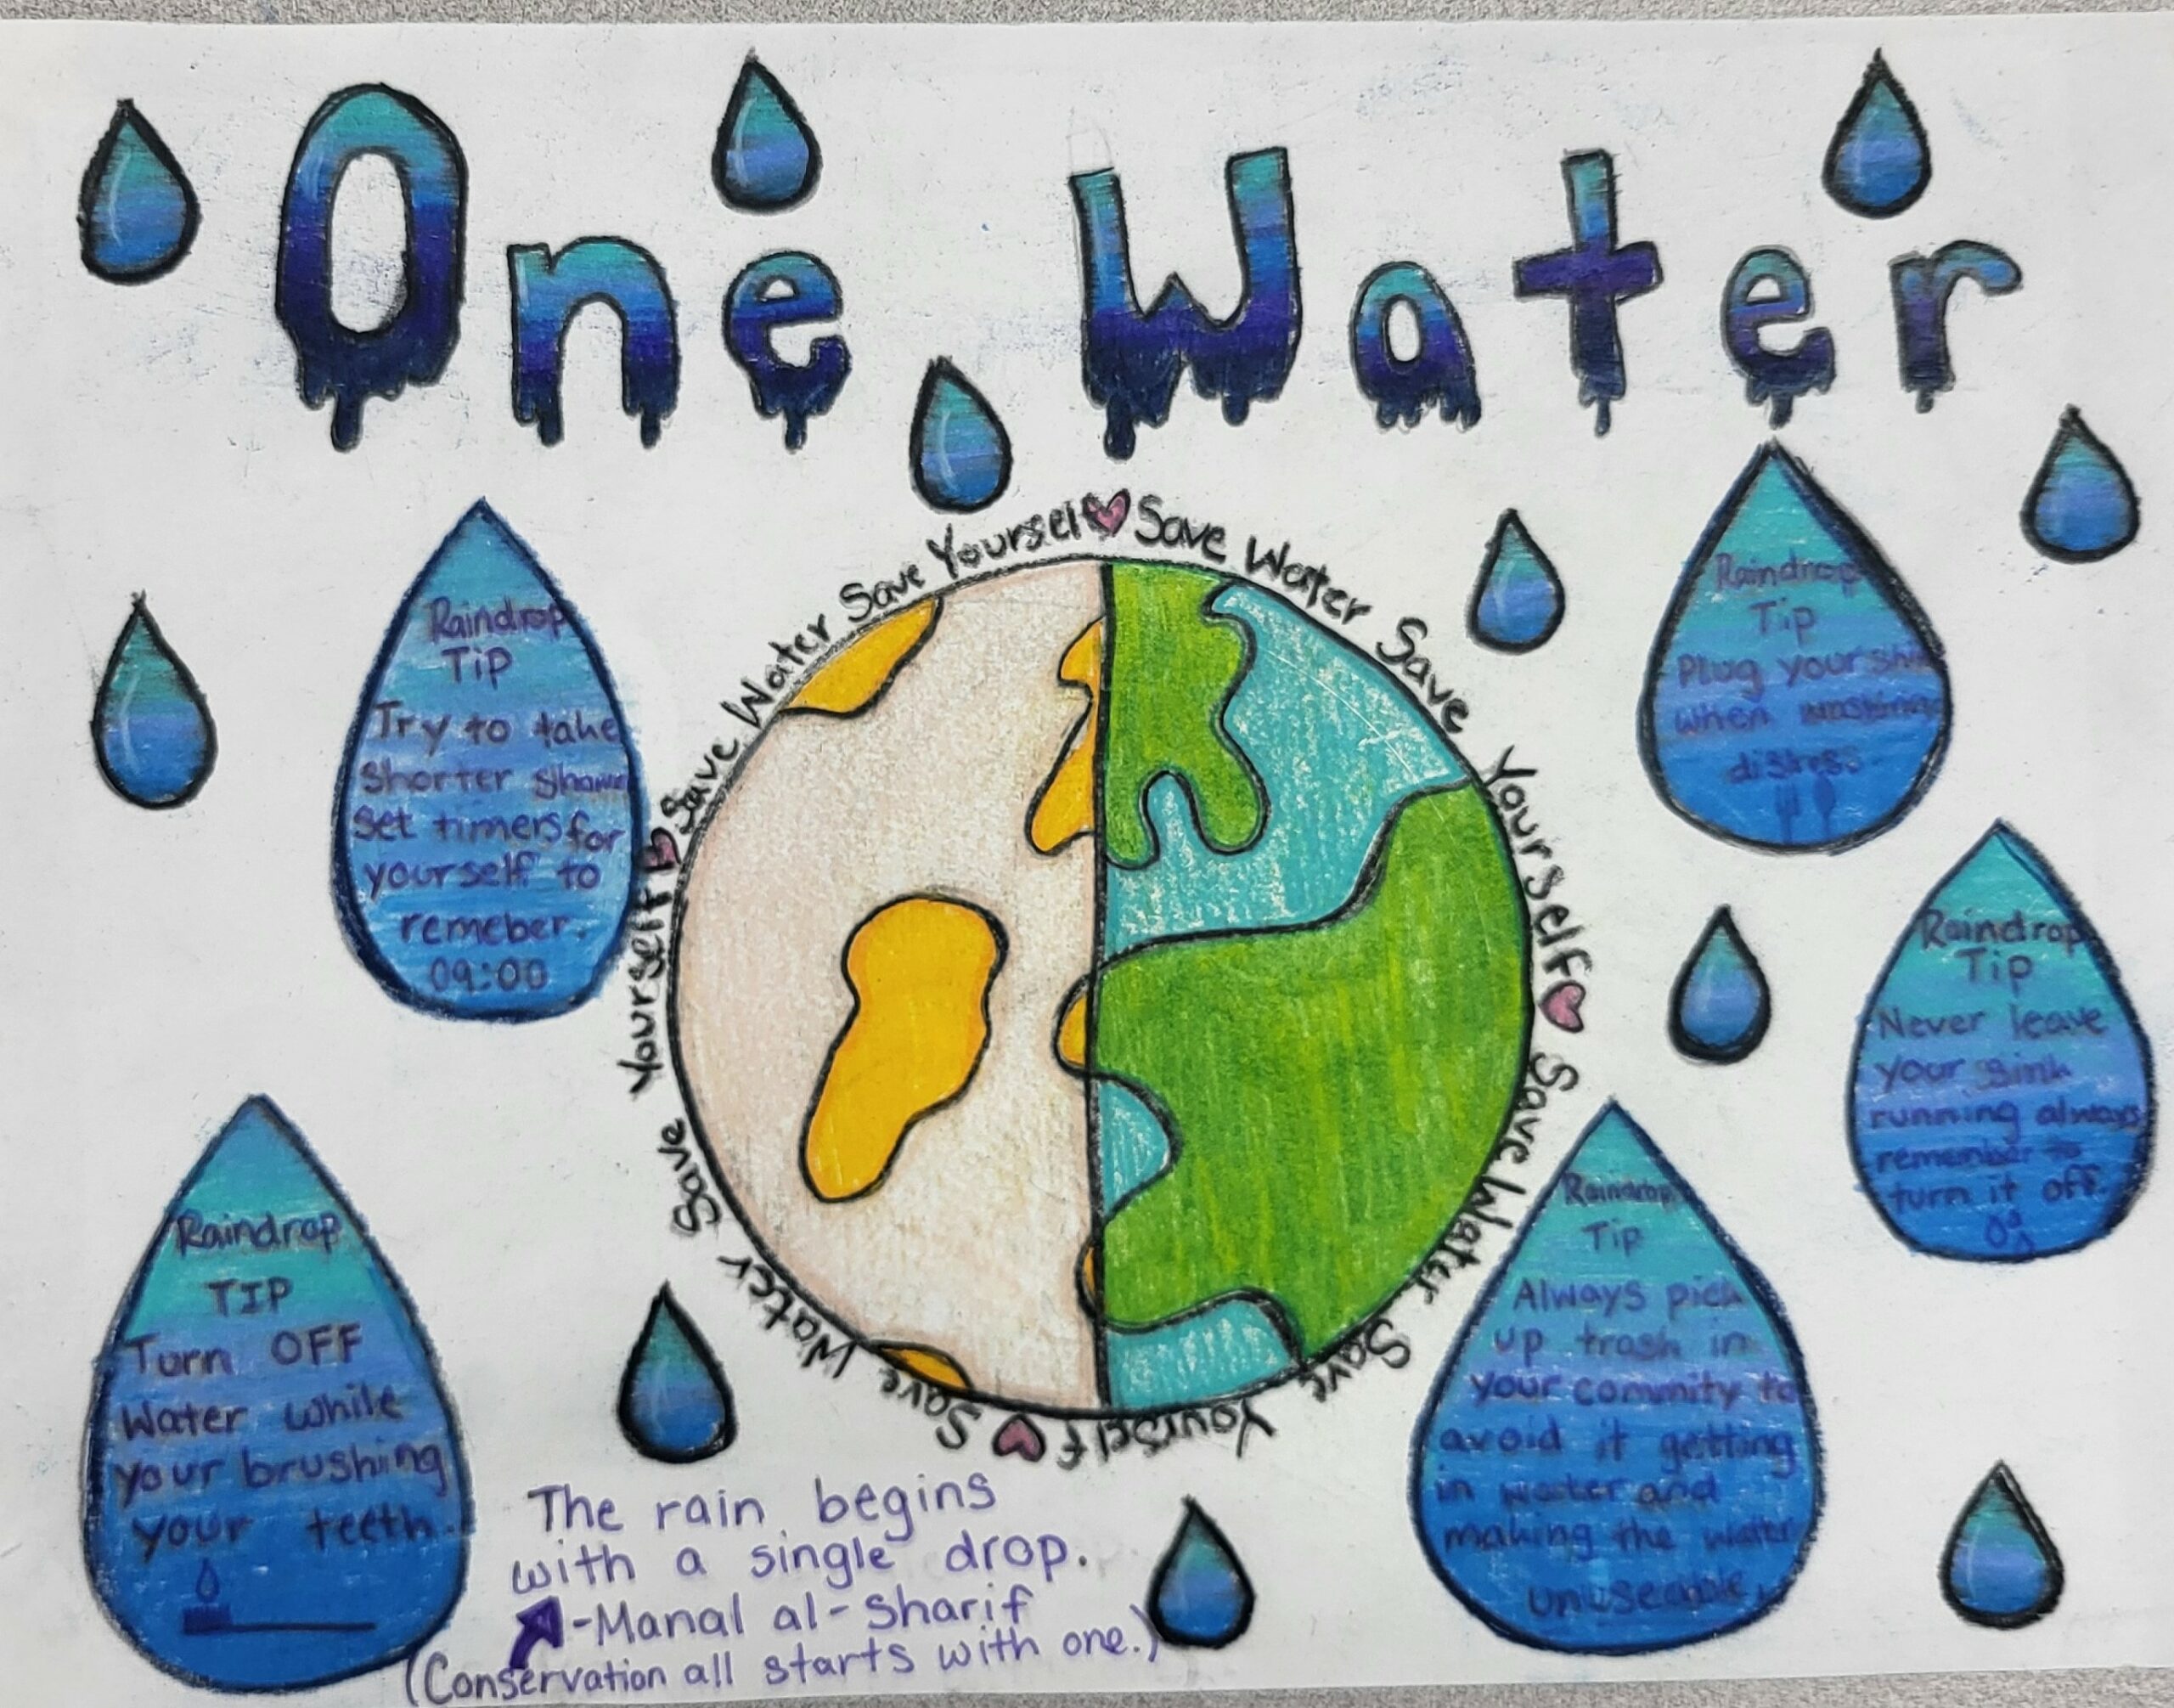 One Water
Save Water Save Yourself
Save Water Save Yourself
Save Water Save Yourself
Save Water Save Yourself
Raindrop
Tip
Try to take
shorter
set timers for
yourself to
remeber.
09:00
Raindrop
Tip
Plug your
when washing
Raindrop
Tip
Never leave
your sink
running always
remember to
turn it off.
Raindrop
TIP
Turn OFF
Water while
your brushing
your teeth.
Raindrop
Tip
Always pick
up trash in
your commity to
avoid it getting
in water and
making the water
unuseable
The rain begins
with a single drop.
-Manal al-Sharif
(Conservation all starts with one.)